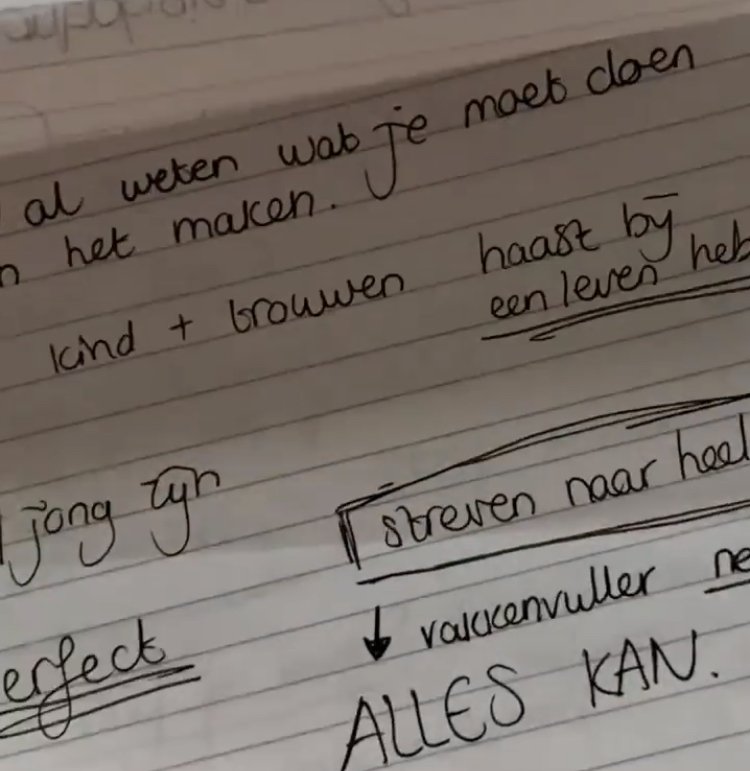 al weten wat je moet doen
het maken.
kind + trouwen
haast bij
een leven heb
jong zijn
streven naar heel
erfect
↓ vakkenvuller ne
ALLES KAN.